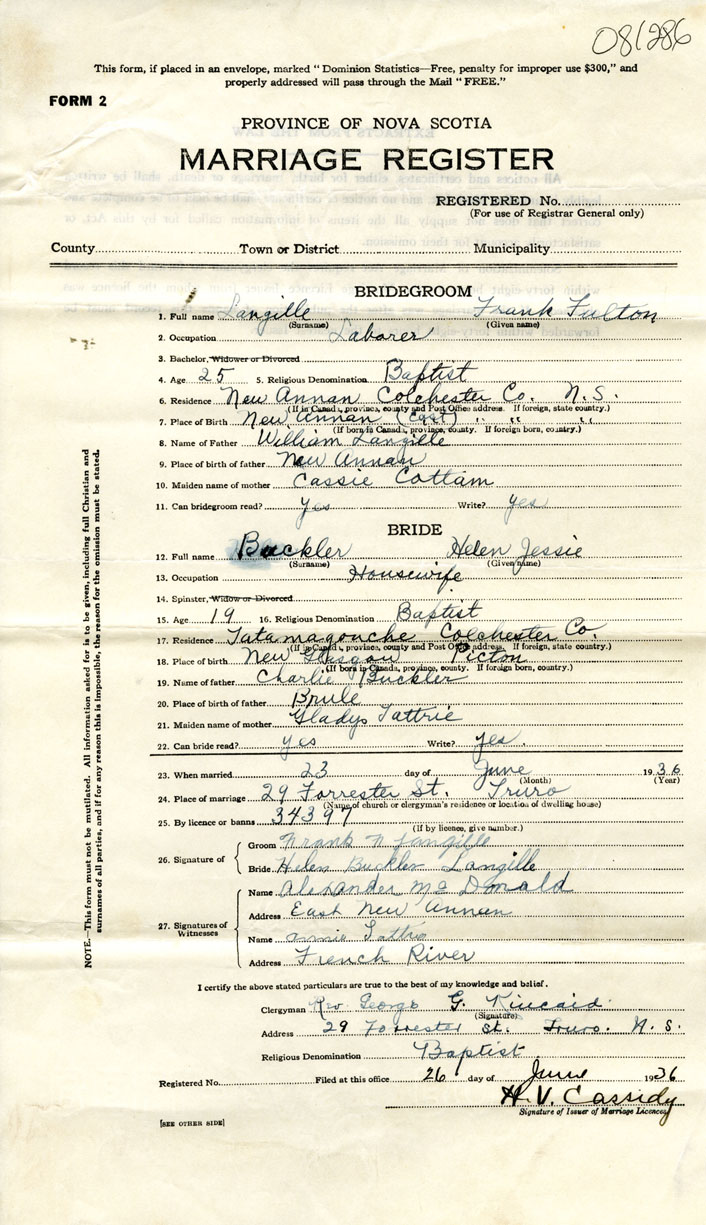 081286
This form, if placed in an envelope, marked "Dominion Statistics—Free, penalty for improper use $300," and
properly addressed will pass through the Mail "FREE."
FORM 2
PROVINCE OF NOVA SCOTIA
MARRIAGE REGISTER
REGISTERED No.
(For use of Registrar General only)
County Town or District Municipality
BRIDEGROOM
1. Full name Langille Frank Fulton
(Surname) (Given name)
2. Occupation Laborer
3. Bachelor, Widower or Divorced
4. Age 25 5. Religious Denomination Baptist
6. Residence New Annan Colchester Co. N.S.
(If in Canada, province, county and Post Office address. If foreign, state country.)
7. Place of Birth New Annan (East) " " "
(If born in Canada, province, county. If foreign born, country.)
8. Name of Father William Langille
9. Place of birth of father New Annan
10. Maiden name of mother Cassie Cottam
11. Can bridegroom read? Yes Write? Yes
BRIDE
12. Full name Buckler Helen Jessie
(Surname) (Given name)
13. Occupation Housewife
14. Spinster, Widow or Divorced
15. Age 19 16. Religious Denomination Baptist
17. Residence Tatamagouche Colchester Co.
(If in Canada, province, county and Post Office address. If foreign, state country.)
18. Place of birth New Glasgow Picton
(If born in Canada, province, county. If foreign born, country.)
19. Name of father Charlie Buckler
20. Place of birth of father Brule
21. Maiden name of mother Gladys Tattrie
22. Can bride read? Yes Write? Yes.
23. When married 23 day of June 1936
(Month) (Year)
24. Place of marriage 29 Forrester St. Truro
(Name of church or clergyman's residence or location of dwelling house)
25. By licence or banns 34397
(If by licence, give number.)
26. Signature of
Groom Frank Langille
Bride Helen Buckler Langille
27. Signatures of Witnesses
Name Alexander McDonald
Address East New Annan
Name Annie Tattrie
Address French River
I certify the above stated particulars are true to the best of my knowledge and belief.
Clergyman Rev. George G. Kincaid.
(Signature)
Address 29 Forrester St. Truro. N.S.
Religious Denomination Baptist
Registered No. Filed at this office 26 day of June 1936
H. V. Cassidy
Signature of Issuer of Marriage Licences
[SEE OTHER SIDE]
NOTE.—This form must not be mutilated. All information asked for is to be given, including full Christian and
surnames of all parties, and if for any reason this is impossible, the reason for the omission must be stated.